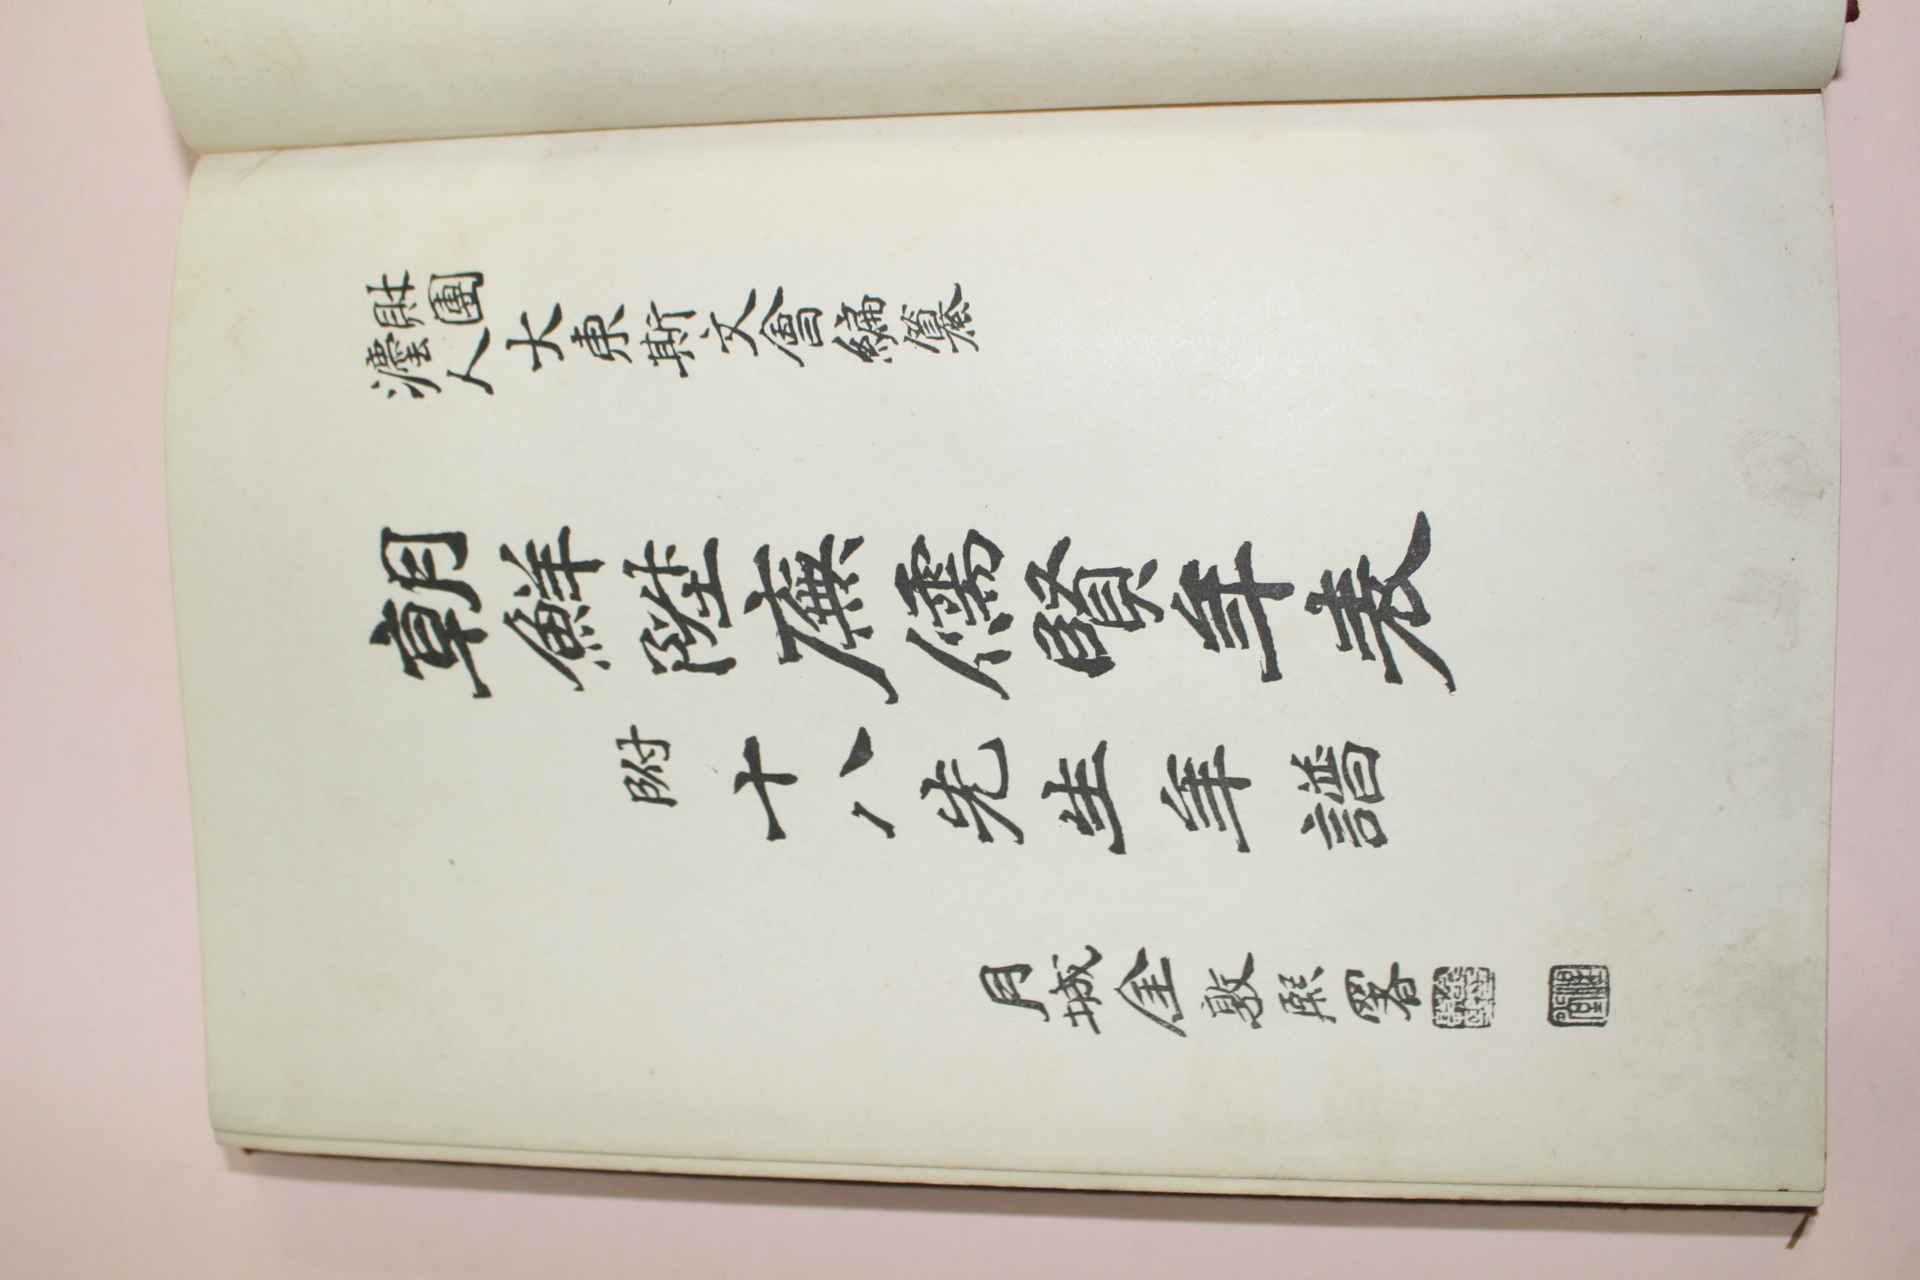 財團
灋人
大東斯文會編纂
朝鮮陞廡儒賢年表
附 十八先生年譜
月城金敦熙署